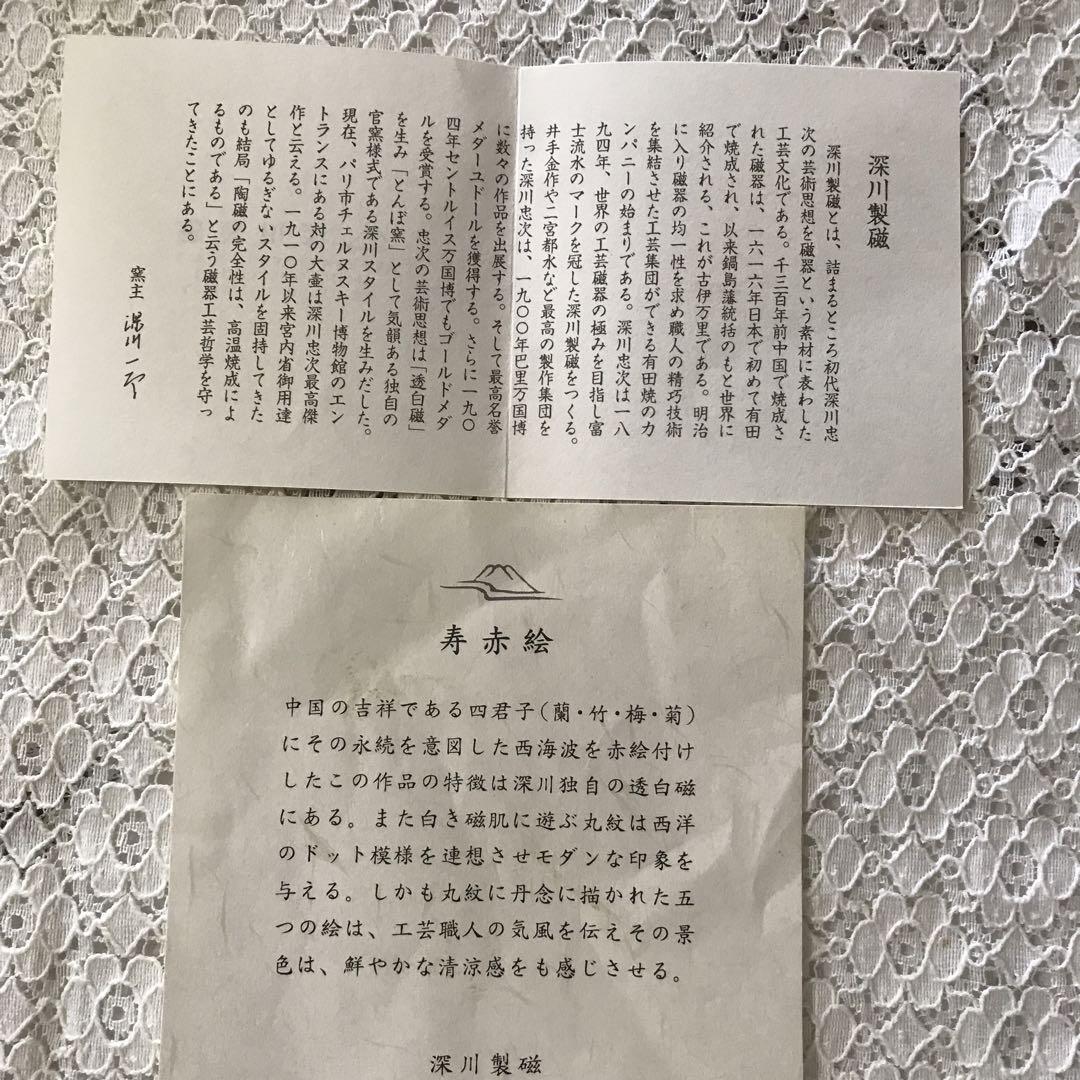 深川製磁
深川製磁とは、詰まるところ初代深川忠
次の芸術思想を磁器という素材に表わした
工芸文化である。千三百年前中国で焼成さ
れた磁器は、一六一六年日本で初めて有田
で焼成され、以来鍋島藩統括のもと世界に
紹介される、これが古伊万里である。明治
に入り磁器の均一性を求め職人の精巧技術
を集結させた工芸集団ができる有田焼の力
ンパニーの始まりである。深川忠次は一八
九四年、世界の工芸磁器の極みを目指し富
士流水のマークを冠した深川製磁をつくる。
井手金作や二宮都水など最高の製作集団を
持った深川忠次は、一九〇〇年巴里万国博
に数々の作品を出展する。そして最高名誉
メダーユドールを獲得する。さらに一九〇
四年セントルイス万国博でもゴールドメダ
ルを受賞する。忠次の芸術思想は「透白磁」
を生み「とんぼ窯」として気韻ある独自の
官窯様式である深川スタイルを生みだした。
現在、パリ市チェルヌスキー博物館のエン
トランスにある対の大壷は深川忠次最高傑
作と云える。一九一〇年以来宮内省御用達
としてゆるぎないスタイルを固持してきた
のも結局「陶磁の完全性は、高温焼成によ
るものである」と云う磁器工芸哲学を守っ
てきたことにある。
窯主 深川一
寿赤絵
中国の吉祥である四君子(蘭・竹・梅・菊)
にその永続を意図した西海波を赤絵付け
したこの作品の特徴は深川独自の透白磁
にある。また白き磁肌に遊ぶ丸紋は西洋
のドット模様を連想させモダンな印象を
与える。しかも丸紋に丹念に描かれた五
つの絵は、工芸職人の気風を伝えその景
色は、鮮やかな清涼感をも感じさせる。
深川製磁